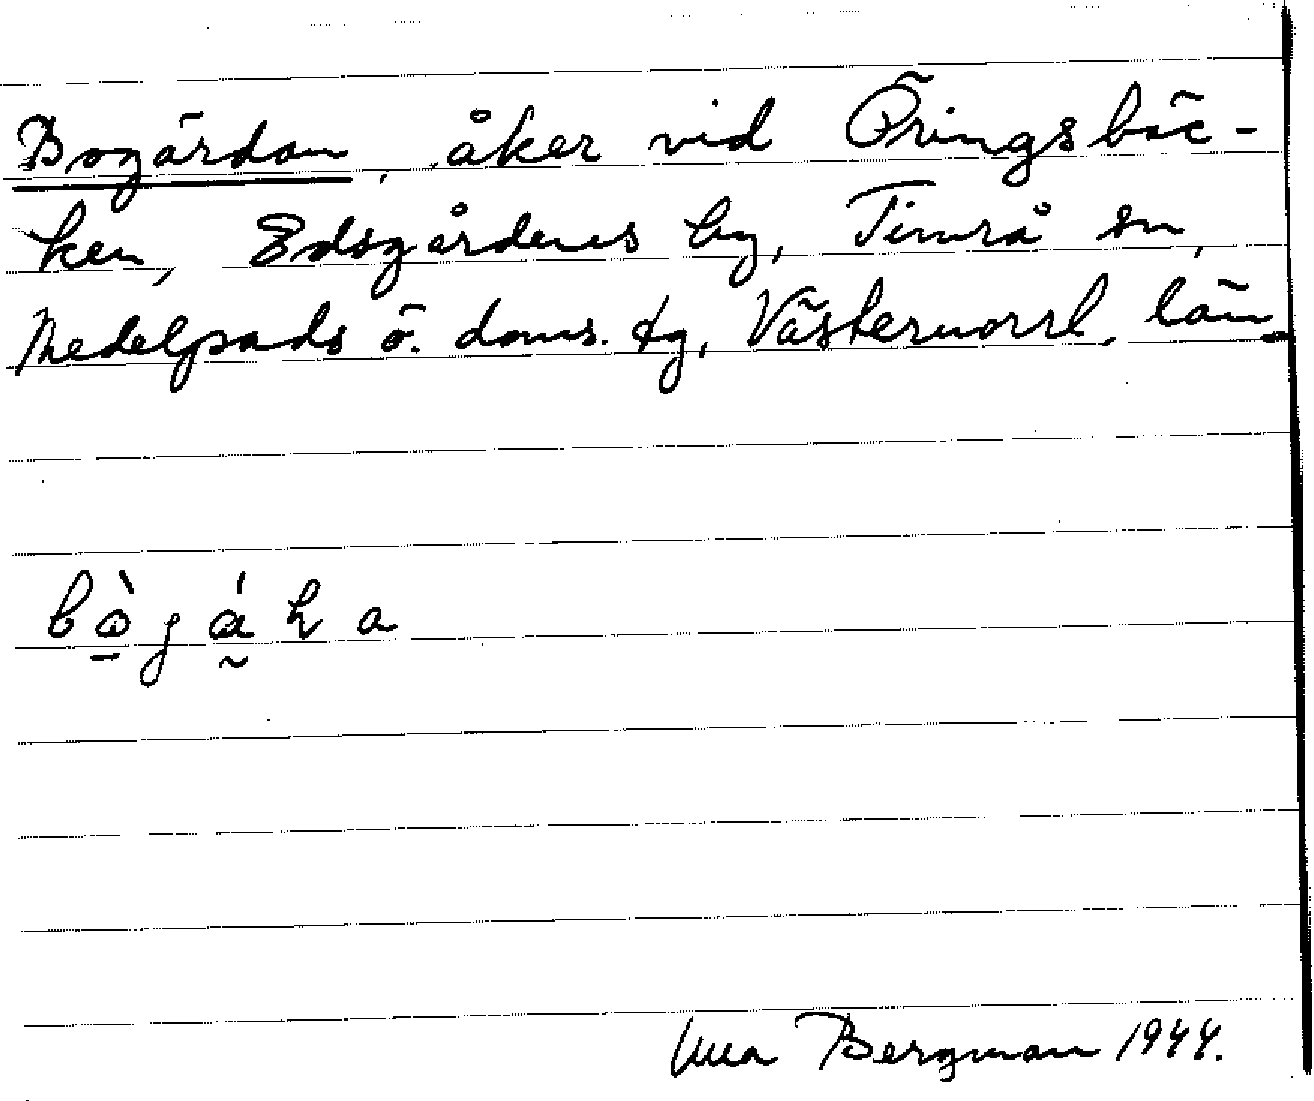 Bogärdan, åker vid Öringsbäc-
ken, Edsgårdens by, Timrå sn,
Medelpads ö. doms. tg, Västernorrl. län.
Bergman 1944.